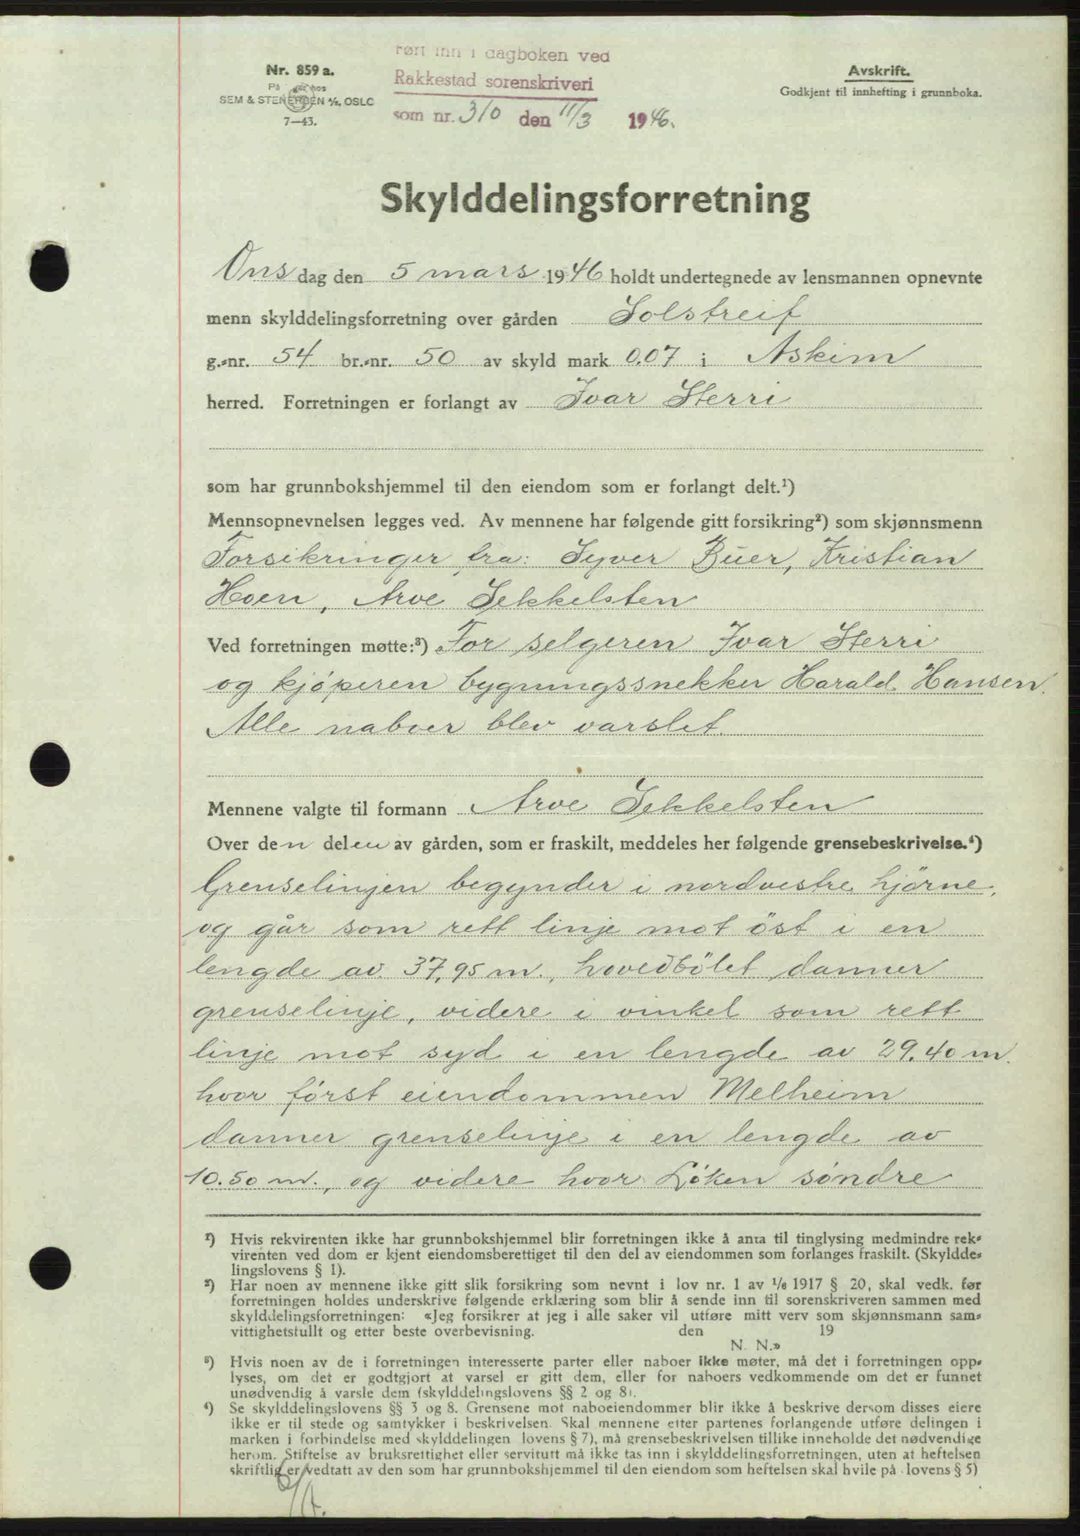 ført inn i dagboken ved
Rakkestad sorenskriveri
som nr. 310 den 11/3 1946.
Nr. 859 a.
På hos
SEM & STENERSEN A/S, OSLO
7—43.
Avskrift.
Godkjent til innhefting i grunnboka.
Skylddelingsforretning
Onsdag den 5 mars 1946 holdt undertegnede av lensmannen opnevnte
menn skylddelingsforretning over gården Solstreif
g.-nr. 54 br.-nr. 50 av skyld mark 0.07 i Askim
herred. Forretningen er forlangt av Ivar Sterri
som har grunnbokshjemmel til den eiendom som er forlangt delt.¹)
Mennsopnevnelsen legges ved. Av mennene har følgende gitt forsikring²) som skjønnsmenn
Forsikringer fra: Syver Buer, Kristian
Hoen, Arve Sekkelsten
Ved forretningen møtte:³) For selgeren Ivar Sterri
og kjøperen bygningssnekker Harald Hansen.
Alle naboer blev varslet.
Mennene valgte til formann Arve Sekkelsten
Over den delen av gården, som er fraskilt, meddeles her følgende grensebeskrivelse.⁴)
Grenselinjen begynder i nordvestre hjørne,
og går som rett linje mot öst i en
lengde av 37,95 m., hovedbölet danner
grenselinje, videre i vinkel som rett
linje mot syd i en lengde av 29.40 m.
hvor først eiendommen Melheim
danner grenselinje i en lengde av
10.50 m., og videre hvor Løken søndre
¹) Hvis rekvirenten ikke har grunnbokshjemmel blir forretningen ikke å anta til tinglysing medmindre rek-
virenten ved dom er kjent eiendomsberettiget til den del av eiendommen som forlanges fraskilt. (Skyldde-
lingslovens § 1).
²) Har noen av mennene ikke gitt slik forsikring som nevnt i lov nr. 1 av 1/6 1917 § 20, skal vedk. før
forretningen holdes underskrive følgende erklæring som blir å sende inn til sorenskriveren sammen med
skylddelingsforretningen: «Jeg forsikrer at jeg i alle saker vil utføre mitt verv som skjønnsmann sam-
vittighetsfullt og etter beste overbevisning. den 19
N. N.»
³) Hvis noen av de i forretningen interesserte parter eller naboer ikke møter, må det i forretningen opp-
lyses, om det er godtgjort at varsel er gitt dem, eller for naboers vedkommende om det er funnet
unødvendig å varsle dem (skylddelingslovens §§ 2 og 8).
⁴) Se skylddelingslovens §§ 3 og 8. Grensene mot naboeiendommer blir ikke å beskrive dersom disses eiere
ikke er til stede og samtykker i beskrivelsen. Skal mennene etter partenes forlangende utføre delingen i
marken i forbindelse med skylddelingen lovens § 7), må grensebeskrivelsen tillike inneholde det nødvendige
herom. Stiftelse av bruksrettighet eller servitutt må ikke tas inn i skylddelingsforretningen, uten at heftelsen
skriftlig er vedtatt av den som har grunnbokshjemmel til den eiendom som heftelsen skal hvile på lovens § 5)